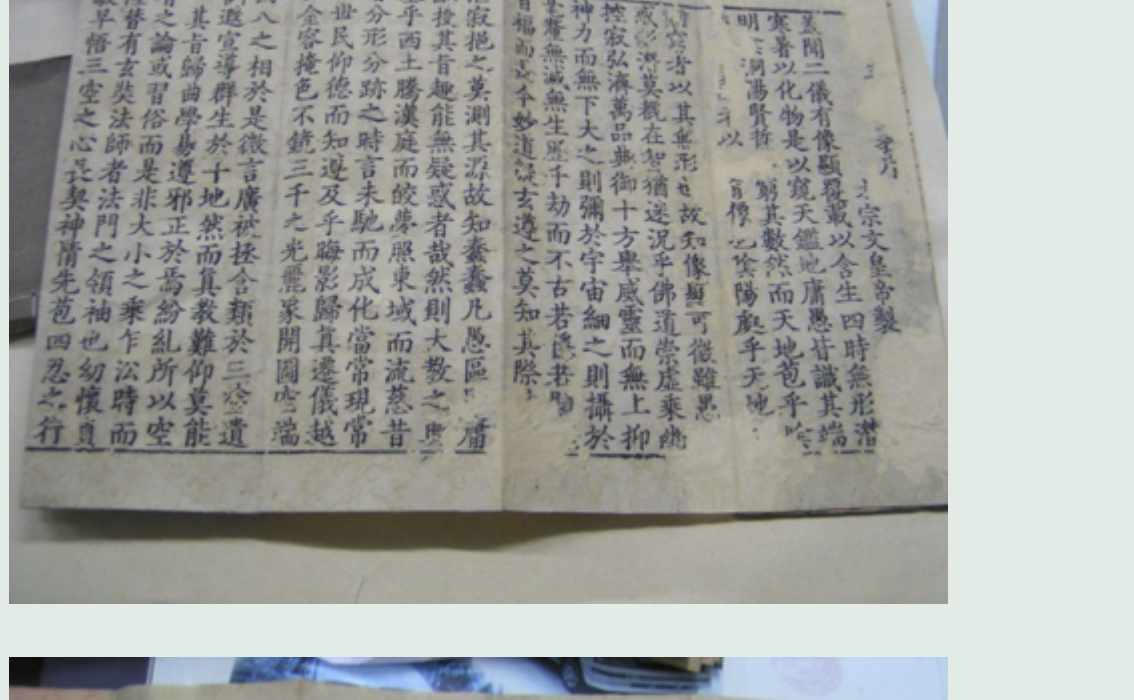 宗文皇帝製
蓋聞二儀有像顯覆載以含生四時無形潛
寒暑以化物是以窺天鑑地庸愚皆識其端
明 洞陽賢哲 窮其數然而天地苞乎
以 有像也陰陽處乎天地
窮者以其無形也故知像顯可徵雖愚
惑形潛莫覩在智猶迷況乎佛道崇虛乘幽
控寂弘濟萬品典御十方舉威靈而無上抑
神力而無下大之則彌於宇宙細之則攝於
毫釐無滅無生歷千劫而不古若隱若
百福而長今妙道凝玄遵之莫知其際
寂挹之莫測其源故知蠢蠢凡愚區 庸
投其旨趣能無疑惑者哉然則大教之興
乎西土騰漢庭而皎夢照東域而流慈昔
分形分跡之時言未馳而成化當常現常
世民仰德而知遵及乎晦影歸真遷儀越
金容掩色不鏡三千之光麗象開圖空端
八之相於是微言廣被拯含類於三空遺
遐宣導群生於十地然而真教難仰莫能
其旨歸曲學易遵邪正於焉紛糺所以空
之論或習俗而是非大小之乘乍沿時而
隆替有玄奘法師者法門之領袖也幼懷貞
早悟三空之心長契神情先苞四忍之行